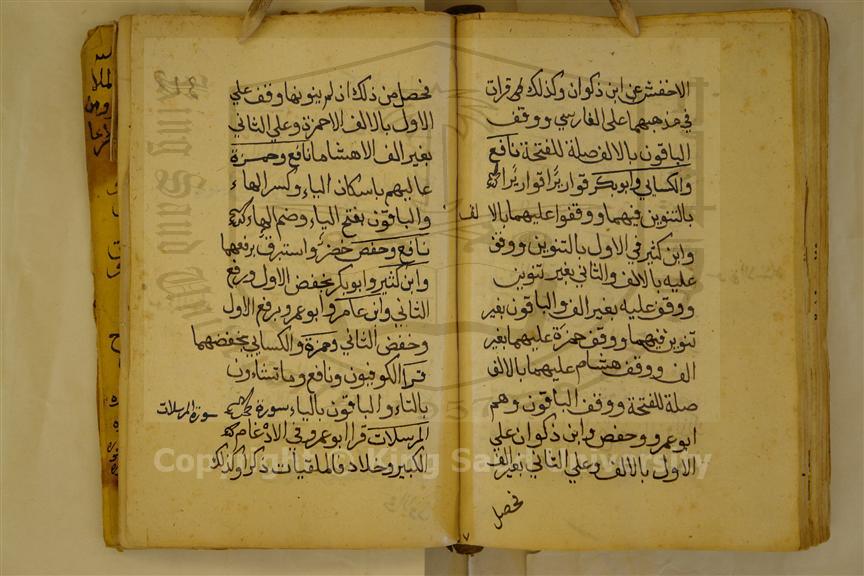 الاخفش عن ابن ذكوان وكذلك قرات
في مذهبهما على الفارسي ووقف
الباقون بالالف صلة للفتحة نافع
والكسائي وابو بكر قواريرًا قواريرًا
بالتنوين فيهما ووقفوا عليهما بالالف
وابن كثير في الاول بالتنوين ووقف
عليه بالالف والثاني بغير تنوين
ووقف عليه بغير الف والباقون بغير
تنوين فيهما ووقف حمزة عليهما بغير
الف ووقف هشام عليهما بالالف
صلة للفتحة ووقف الباقون وهم
ابو عمرو وحفص وابن ذكوان على
الاول بالالف وعلى الثاني بغير الف
فحصل
فحصل من ذلك ان لم ينونهما وقف على
الاول بالالف الا حمزة وعلى الثاني
بغير الف الا هشاما نافع وحمزة
عاليهم باسكان الياء وكسر الهاء
والباقون بفتح الياء وضم الهاء
نافع وحفص خضر واستبرق برفعهما
وابن كثير وابو بكر بخفض الاول ورفع
الثاني وابن عامر وابو عمرو برفع الاول
وخفض الثاني وحمزة والكسائي بخفضهما
قرا الكوفيون ونافع وما تشاءون
بالتاء والباقون بالياء سورة
سورة المرسلات
المرسلات قرا ابو عمرو في الادغام
الكبير وخلاد فالملقيات ذكرا وكذلك
Copyright © King Saud University
King Saud Un
1957
٧